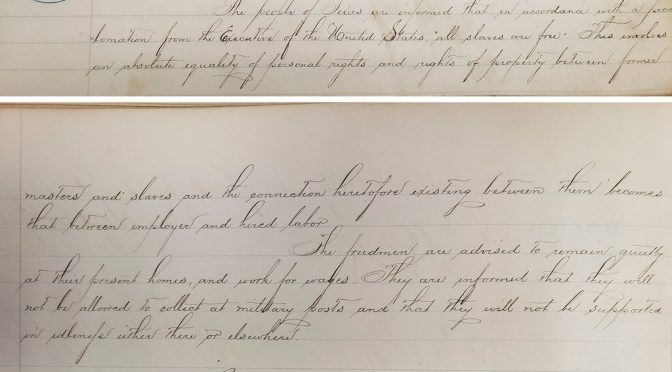 The people of Texas are informed that in accordance with a proc
lamation from the Executive of the United States "all slaves are free." This involves
an absolute equality of personal rights and rights of property between former
masters and slaves and the connection heretofore existing between them becomes
that between employer and hired labor.
The freedmen are advised to remain quietly
at their present homes, and work for wages. They are informed that they will
not be allowed to collect at military posts and that they will not be supported
in idleness either there or elsewhere.